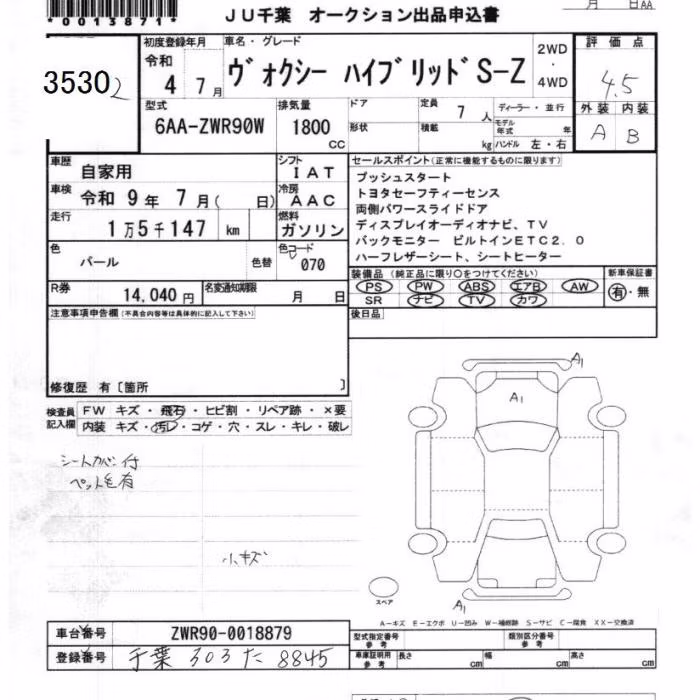 *0013871*
JU千葉 オークション出品申込書
月 日AA
35302
初度登録年月
令和
4 7月
車名・グレード
ヴォクシー ハイブリッドS-Z
2WD
・
4WD
評価点
4.5
外装 内装
A B
型式
6AA-ZWR90W
排気量
1800
CC
ドア
形状
定員
7人
積載
kg
ディーラー・並行
モデル年式 年
ハンドル 左・右
車歴
自家用
シフト
IAT
車検
令和 9年 7月( 日)
冷房
AAC
走行
1万5千147 km
燃料
ガソリン
色
パール
色替
色コード
070
R券
14,040円
名変通知期限
月 日
セールスポイント(正常に機能するものに限ります)
プッシュスタート
トヨタセーフティーセンス
両側パワースライドドア
ディスプレイオーディオナビ、TV
バックモニター ビルトインETC2.0
ハーフレザーシート、シートヒーター
装備品 (純正品に限り○をつけてください)
PS PW ABS エアB AW
SR ナビ TV カワ
新車保証書
有・無
注意事項申告欄(不具合内容等は具体的に記入して下さい)
後日品
修復歴 有〔箇所 〕
検査員記入欄
FW キズ・飛石・ヒビ割・リペア跡・×要
内装 キズ・汚レ・コゲ・穴・スレ・キレ・破レ
シートカバー付
ペット毛有
小キズ
A1
A1
A1
スペア
A-キズ E-エクボ U-凹み W-補修跡 S-サビ C-腐食 XX-交換済
車台番号
ZWR90-0018879
登録番号
千葉 303 た 8845
型式指定番号
参考
類別区分番号
参考
車庫証明用
参考
長さ cm
幅 cm
高さ cm